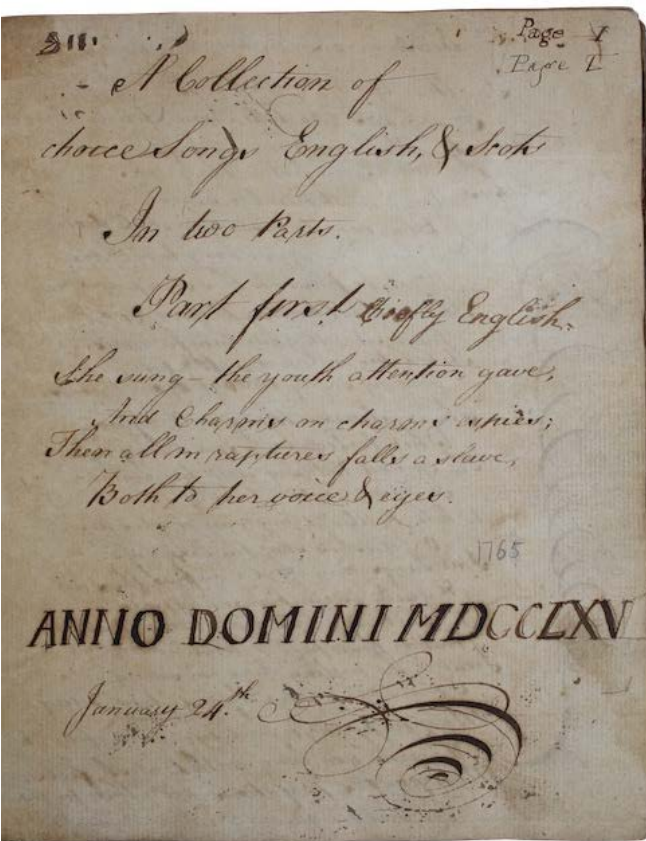 Page I
Page I
A Collection of
choice Songs English, & Scots
In two Parts.
Part first Chiefly English.
She sung - the youth attention gave,
And Charms on charms espies;
Then all in raptures falls a slave,
Both to her voice & eyes.
1765
ANNO DOMINI MDCCLXV
January 24.th